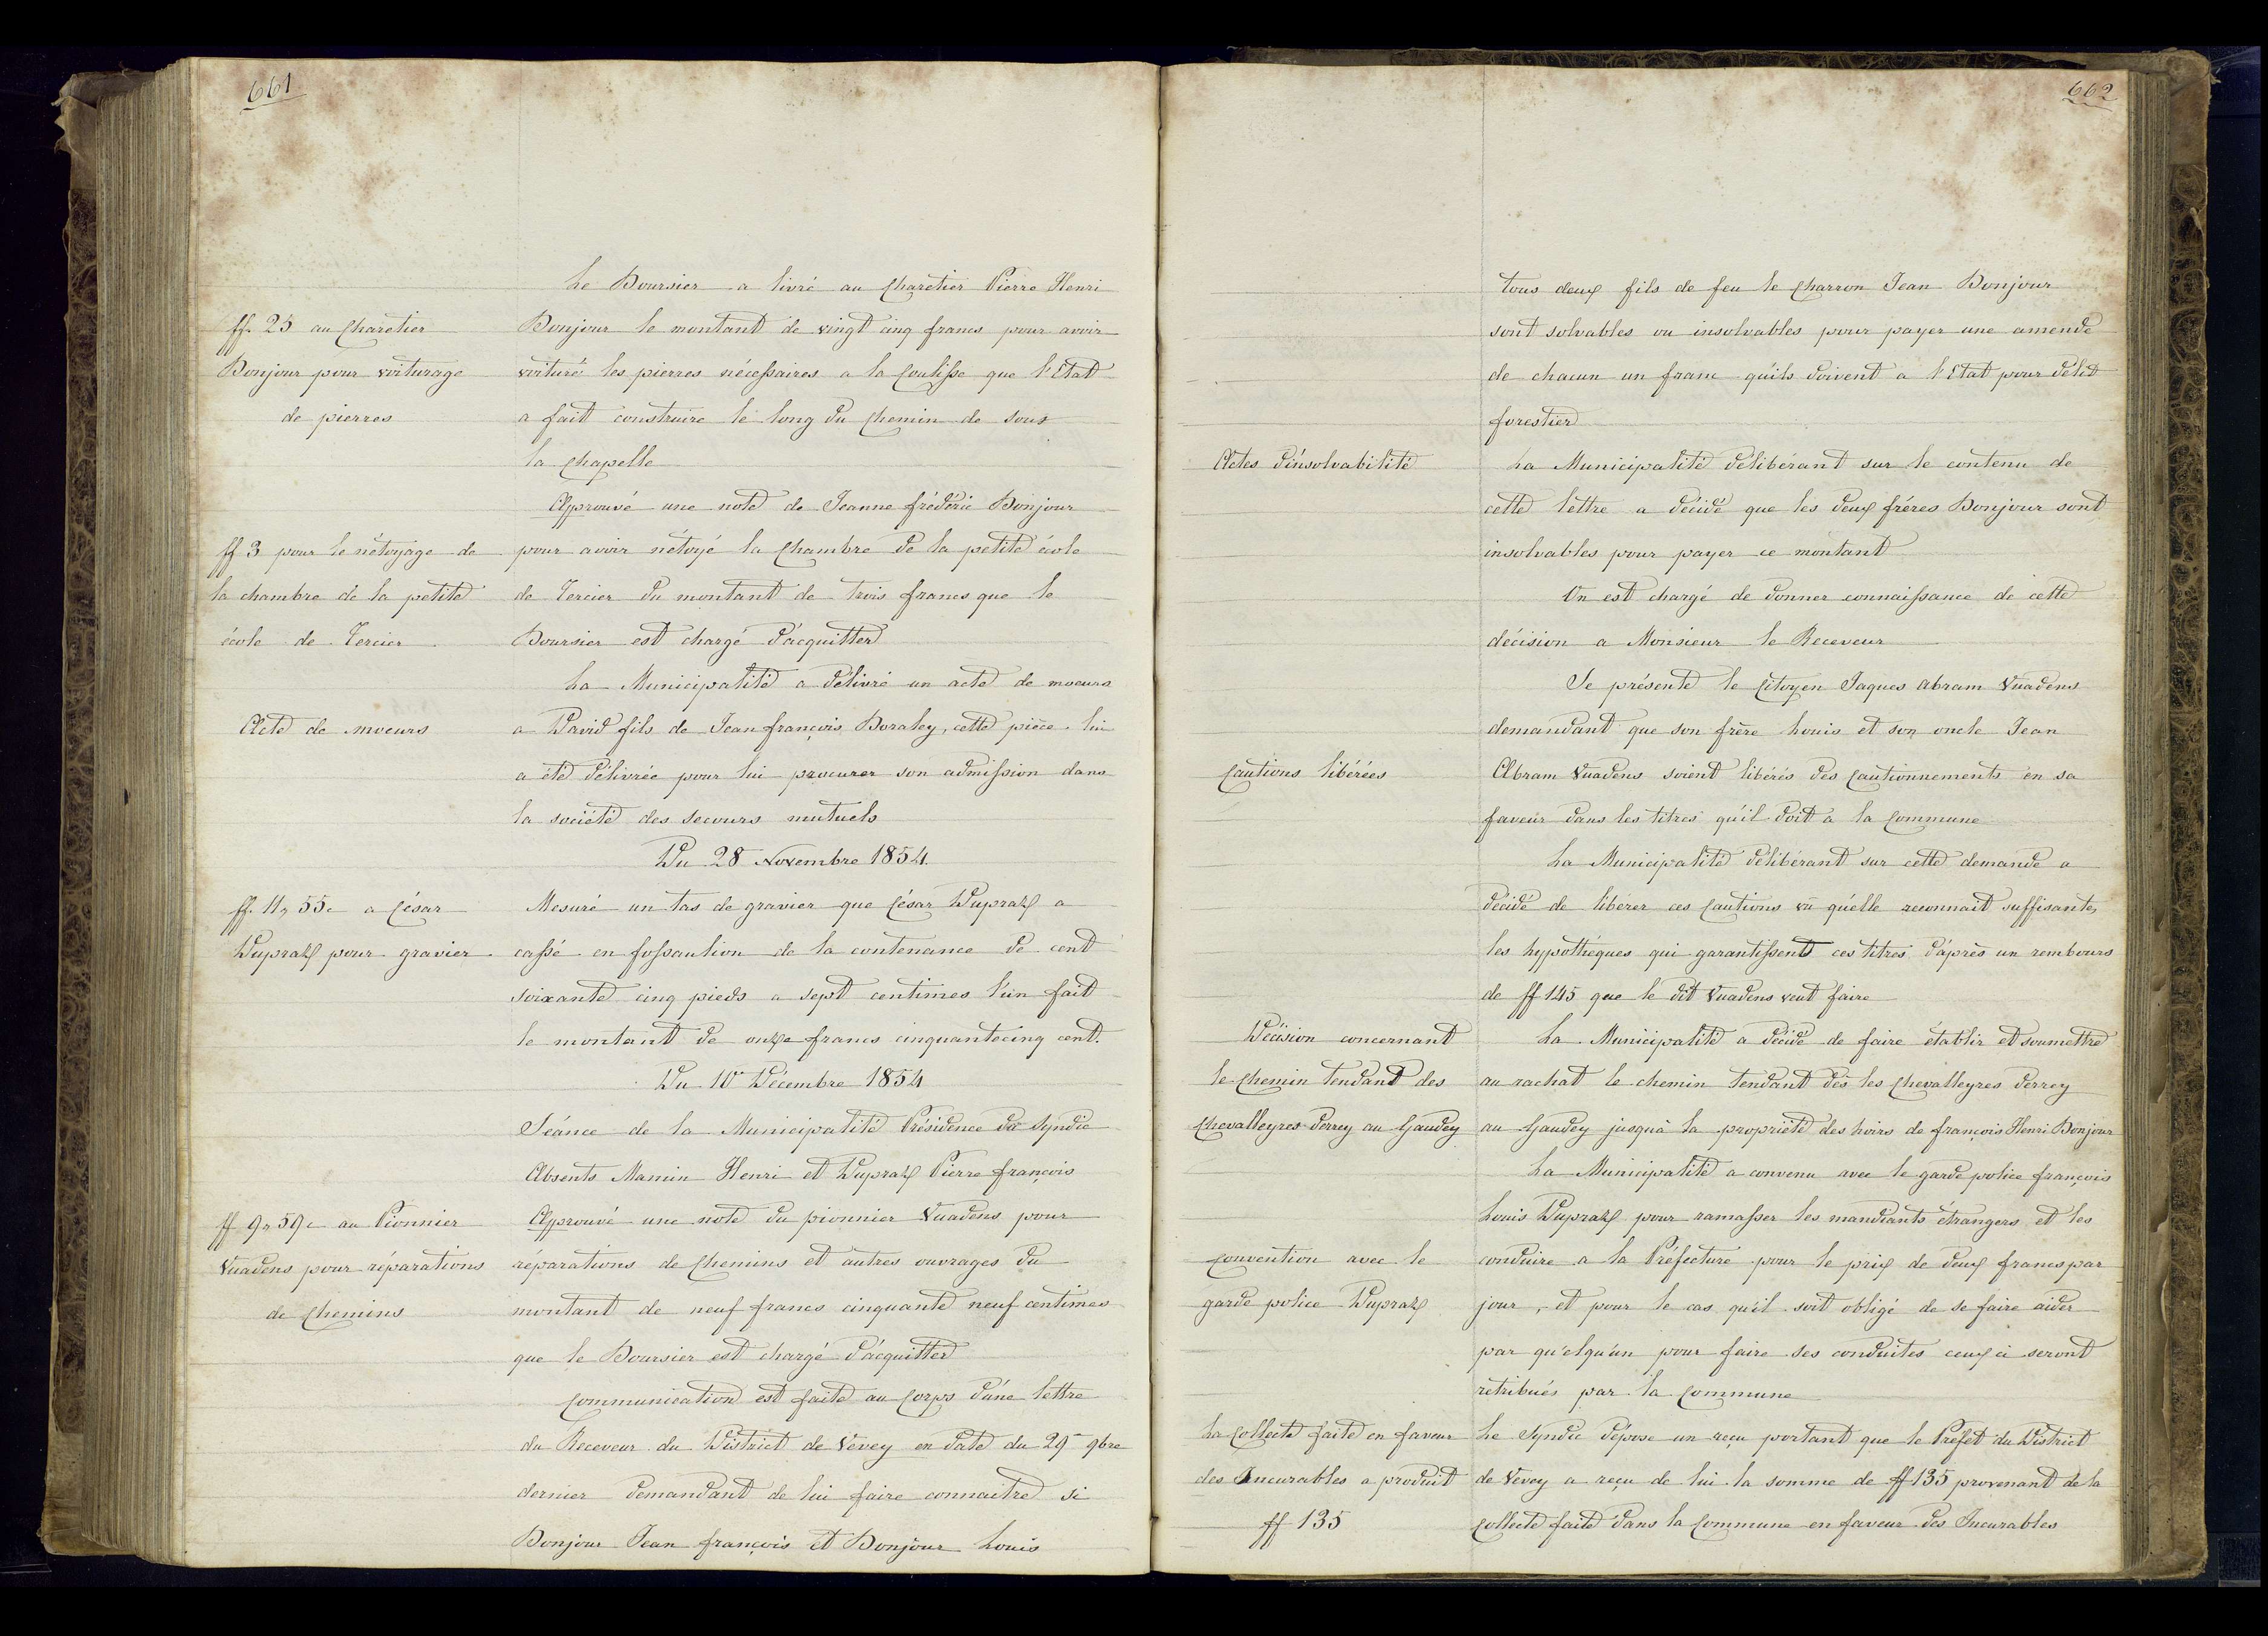 661
Le Boursier a livré au Charetier Pierre Henri
ff. 25 au Charetier
Bonjour pour voiturage
de pierres
Bonjour le montant de vingt cinq francs pour avoir
voituré les pierres nécessaires a la Coulisse que l'Etat
a fait construire le long du Chemin de sous
la Chapelle
Approuvé une note de Jeanne frédéric Bonjour
ff 3 pour le nétoyage de
la chambre de la petite
école de Tercier
pour avoir nétoyé la Chambre de la petite école
de Tercier du montant de trois francs que le
Boursier est chargé d'acquitter
La Municipalité a délivré un acte de moeurs
Acte de moeurs
a David fils de Jean françois Boraley, cette pièce lui
a été délivrée pour lui procurer son admission dans
la société des secours mutuels
Du 28 Novembre 1854.
ff. 11, 55c a César
Dupraz pour gravier
Mesuré un tas de gravier que César Dupraz a
cassé en fossaulion de la contenance de cent
soixante cinq pieds a sept centimes l'un fait
le montant de onze francs cinquante cinq cent.
Du 10 Décembre 1854
Séance de la Municipalité Présidence du Syndic
Absents Mamin Henri et Dupraz Pierre françois
ff 9, 59c au Pionnier
Vuadens pour réparations
de Chemins
Approuvé une note du pionnier Vuadens pour
réparations de Chemins et autres ouvrages du
montant de neuf francs cinquante neuf centimes
que le Boursier est chargé d'acquitter
Communication est faite au Corps d'une lettre
du Receveur du District de Vevey en date du 29 9bre
dernier demandant de lui faire connaitre si
Bonjour Jean françois et Bonjour Louis
662
tous deux fils de feu le Charron Jean Bonjour
sont solvables ou insolvables pour payer une amende
de chacun un franc qu'ils doivent a l'Etat pour délit
forestier
Actes d'insolvabilité
La Municipalité délibérant sur le contenu de
cette lettre a décidé que les deux frères Bonjour sont
insolvables pour payer ce montant
On est chargé de donner connaissance de cette
décision a Monsieur le Receveur
Se présente le Citoyen Jaques Abram Vuadens
demandant que son frère Louis et son oncle Jean
Cautions libérées
Abram Vuadens soient libérés des Cautionnements en sa
faveur dans les titres qu'il doit a la Commune
La Municipalité délibérant sur cette demande a
décidé de libérer ces Cautions vû qu'elle reconnait suffisantes
les hypothéques qui garantissent ces titres d'après un rembours
de ff 145 que le dit Vuadens veut faire
Décision concernant
le Chemin tendant des
Chevalleyres derrey au Gaudey
La Municipalité a décidé de faire établir et soumettre
au rachat le chemin tendant dès les Chevalleyres derrey
au Gaudey jusqu'à la propriété des hoirs de françois Henri Bonjour
La Municipalité a convenu avec le garde police françois
Louis Dupraz pour ramasser les mandiants étrangers et les
Convention avec le
garde police Dupraz
conduire a la Préfecture pour le prix de deux francs par
jour, et pour le cas qu'il soit obligé de se faire aider
par qu'elqu'un pour faire ses conduites ceux ci seront
rétribués par la Commune
La Collecte faite en faveur
des Incurables a produit
ff 135
Le Syndic dépose un reçu portant que le Préfet du District
de Vevey a reçu de lui la somme de ff 135 provenant de la
Collecte faite dans la Commune en faveur des Incurables